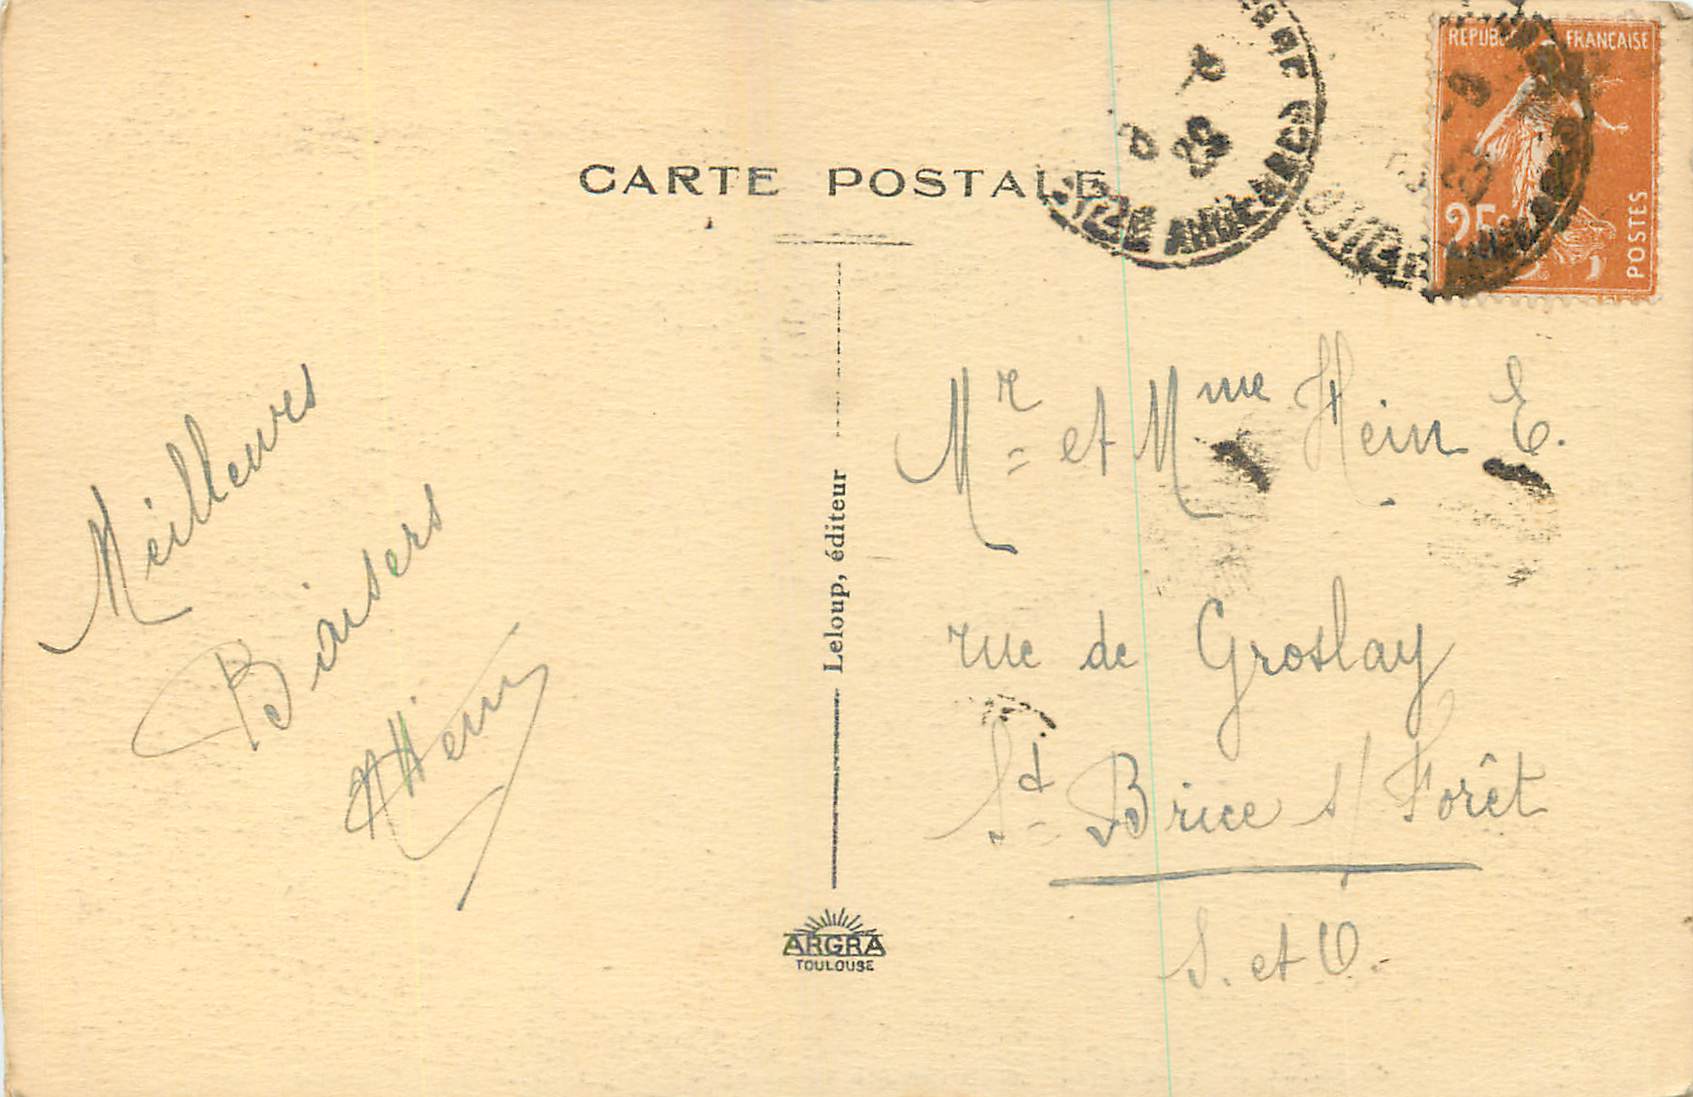 CARTE POSTALE
RÉPUBLIQUE FRANÇAISE
25c
POSTES
Meilleurs
Baisers
Hein
Leloup, éditeur
ARGRA
TOULOUSE
Mr et Mme Hein E.
rue de Groslay
St Brice s/ Forêt
S. et O.